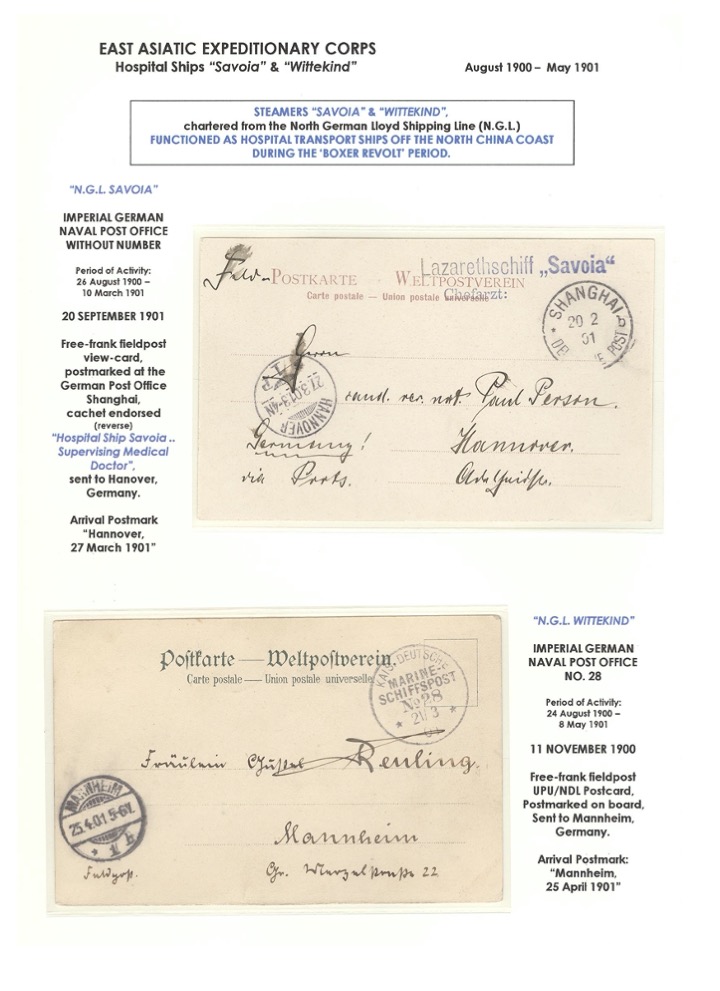 EAST ASIATIC EXPEDITIONARY CORPS
Hospital Ships "Savoia" & "Wittekind"
August 1900 – May 1901
STEAMERS "SAVOIA" & "WITTEKIND",
chartered from the North German Lloyd Shipping Line (N.G.L.)
FUNCTIONED AS HOSPITAL TRANSPORT SHIPS OFF THE NORTH CHINA COAST
DURING THE 'BOXER REVOLT' PERIOD.
"N.G.L. SAVOIA"
IMPERIAL GERMAN
NAVAL POST OFFICE
WITHOUT NUMBER
Period of Activity:
26 August 1900 –
10 March 1901
20 SEPTEMBER 1901
Free-frank fieldpost
view-card,
postmarked at the
German Post Office
Shanghai,
cachet endorsed
(reverse)
"Hospital Ship Savoia ..
Supervising Medical
Doctor",
sent to Hanover,
Germany.
Arrival Postmark
"Hannover,
27 March 1901"
Feld-POSTKARTE — WELTPOSTVEREIN
Carte postale — Union postale universelle
Lazarethschiff „Savoia"
Chefarzt:
SHANGHAI
20 2
01
b
POST
Herrn
HANNOVER
27.3.01.3-4N
cand. rer. nat. Paul Person.
Germany!
Hannover.
via
Postkarte — Weltpostverein.
Carte postale — Union postale universelle
KAIS. DEUTSCHE
MARINE-
SCHIFFSPOST
No 28
21/3
01
Fräulein
Reuling.
MANNHEIM
25.4.01.5-6V.
* 1 h
Mannheim
Feldpost.
22
"N.G.L. WITTEKIND"
IMPERIAL GERMAN
NAVAL POST OFFICE
NO. 28
Period of Activity:
24 August 1900 –
8 May 1901
11 NOVEMBER 1900
Free-frank fieldpost
UPU/NDL Postcard,
Postmarked on board,
Sent to Mannheim,
Germany.
Arrival Postmark:
"Mannheim,
25 April 1901"